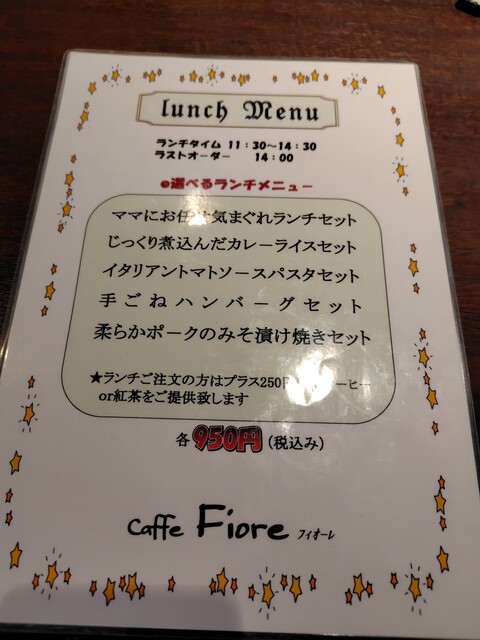 lunch Menu
ランチタイム 11:30〜14:30
ラストオーダー 14:00
選べるランチメニュー
ママにお任せ気まぐれランチセット
じっくり煮込んだカレーライスセット
イタリアントマトソースパスタセット
手ごねハンバーグセット
柔らかポークのみそ漬け焼きセット
★ランチご注文の方はプラス250円 ーヒー
or紅茶をご提供致します
各950円(税込み)
Caffe Fiore フィオーレ